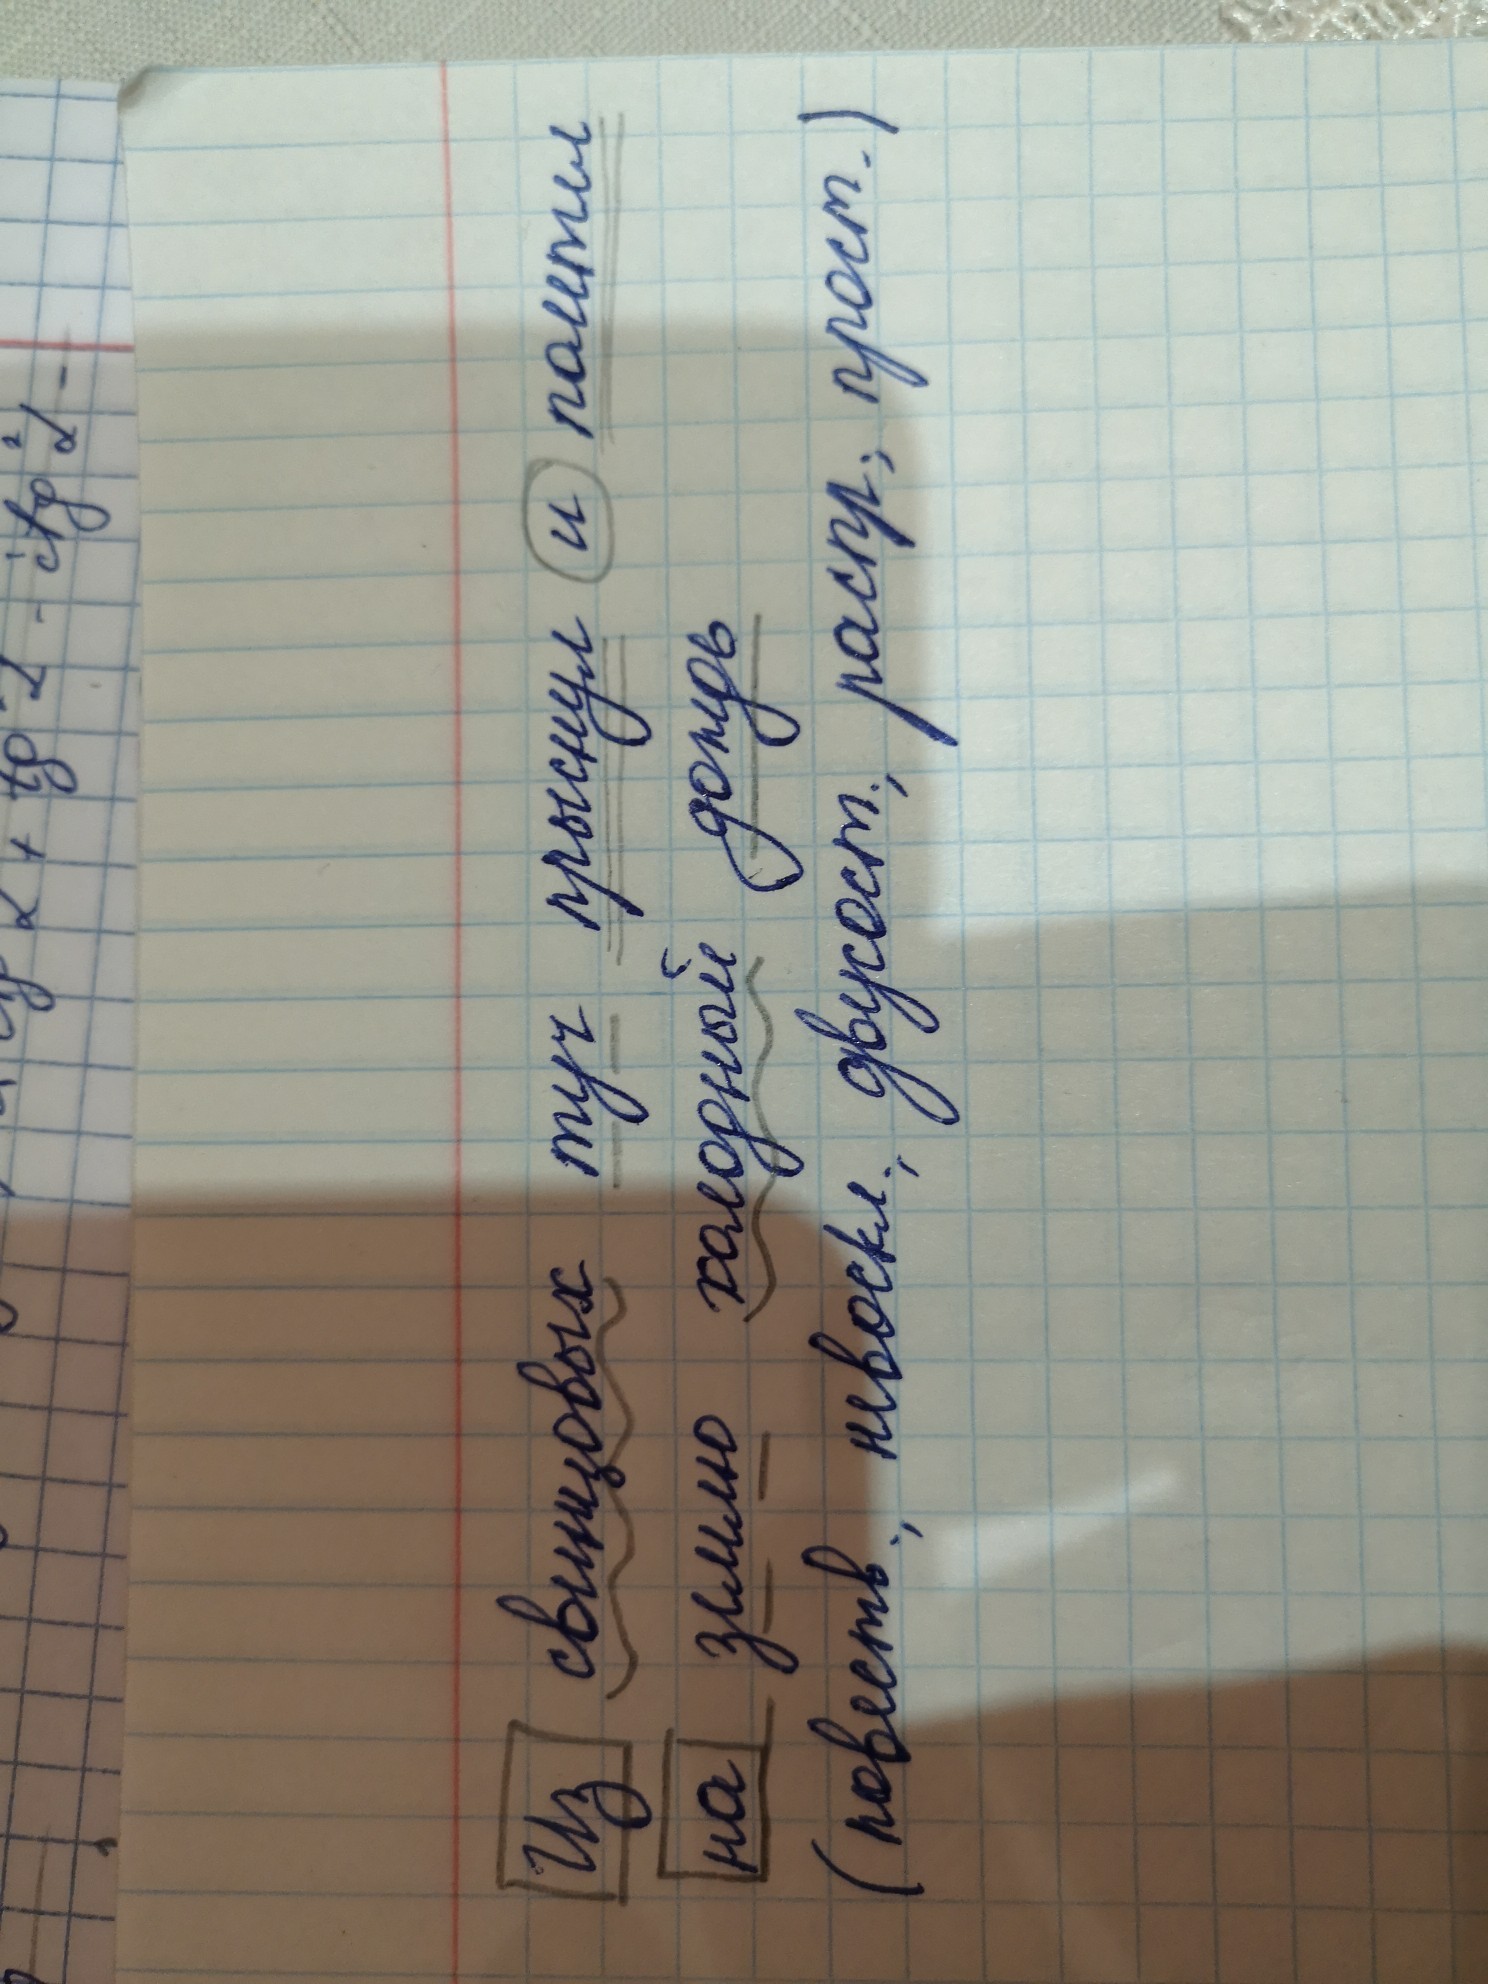 Из свинцовых туч прыснул и полител
на землю холодный дождь
(повеств., невоскл., двусост., распр., прост.)
α + tg² α - ctg² α -